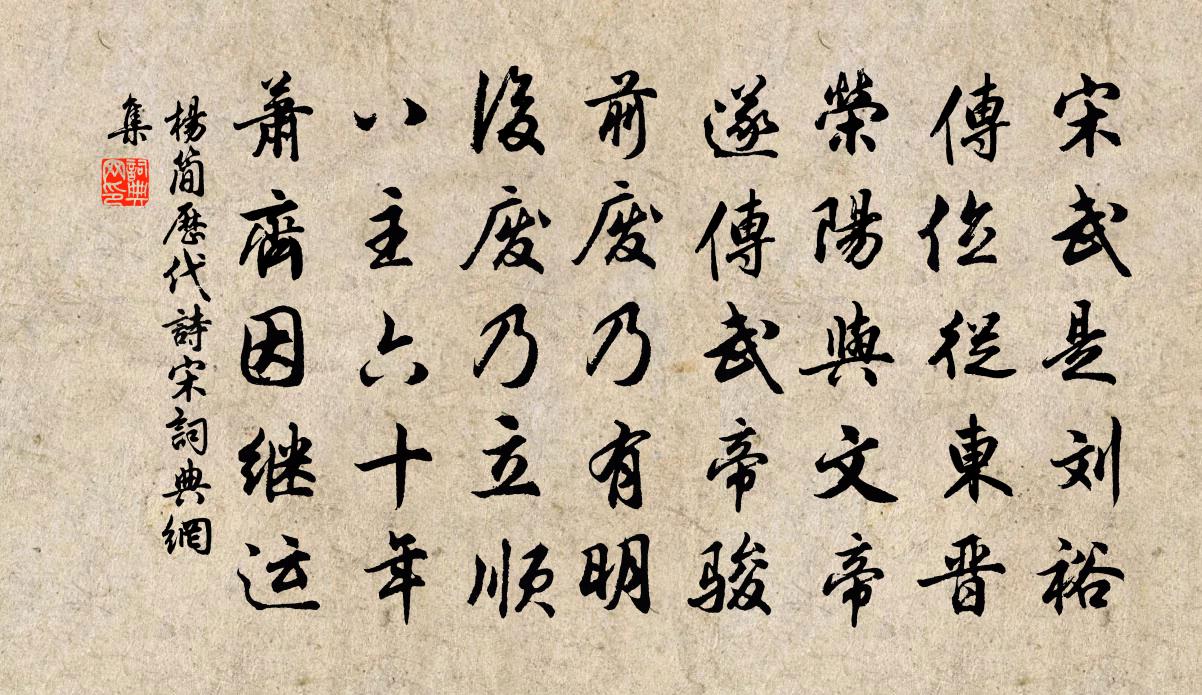 宋武是刘裕
傳位從東晋
榮陽與文帝
遂傳武帝骏
前废乃有明
後废乃立順
八主六十年
蕭齊因继运
楊简歷代詩宋詞典網
集
詞典
网印